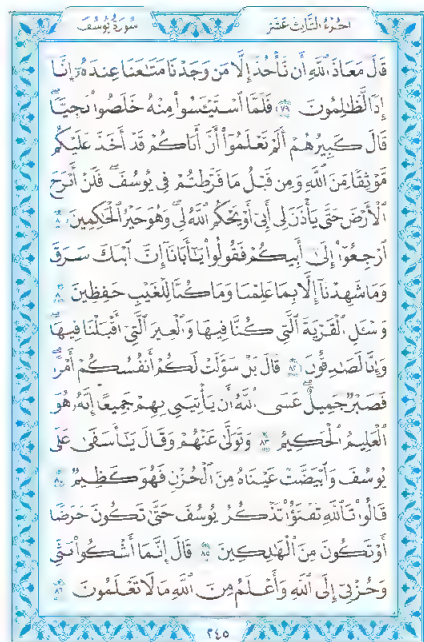 الجزء الثالث عشر
سورة يوسف
قَالَ مَعَاذَ ٱللَّهِ أَن نَّأْخُذَ إِلَّا مَن وَجَدْنَا مَتَٰعَنَا عِندَهُۥٓ إِنَّآ
إِذًا لَّظَٰلِمُونَ ٧٩ فَلَمَّا ٱسْتَيْـَٔسُوا۟ مِنْهُ خَلَصُوا۟ نَجِيًّا
قَالَ كَبِيرُهُمْ أَلَمْ تَعْلَمُوٓا۟ أَنَّ أَبَاكُمْ قَدْ أَخَذَ عَلَيْكُم
مَّوْثِقًا مِّنَ ٱللَّهِ وَمِن قَبْلُ مَا فَرَّطتُمْ فِى يُوسُفَ فَلَنْ أَبْرَحَ
ٱلْأَرْضَ حَتَّىٰ يَأْذَنَ لِىٓ أَبِىٓ أَوْ يَحْكُمَ ٱللَّهُ لِى وَهُوَ خَيْرُ ٱلْحَٰكِمِينَ ٨٠
ٱرْجِعُوٓا۟ إِلَىٰٓ أَبِيكُمْ فَقُولُوا۟ يَٰٓأَبَانَآ إِنَّ ٱبْنَكَ سَرَقَ
وَمَا شَهِدْنَآ إِلَّا بِمَا عَلِمْنَا وَمَا كُنَّا لِلْغَيْبِ حَٰفِظِينَ ٨١
وَسْـَٔلِ ٱلْقَرْيَةَ ٱلَّتِى كُنَّا فِيهَا وَٱلْعِيرَ ٱلَّتِىٓ أَقْبَلْنَا فِيهَا
وَإِنَّا لَصَٰدِقُونَ ٨٢ قَالَ بَلْ سَوَّلَتْ لَكُمْ أَنفُسُكُمْ أَمْرًا
فَصَبْرٌ جَمِيلٌ عَسَى ٱللَّهُ أَن يَأْتِيَنِى بِهِمْ جَمِيعًا إِنَّهُۥ هُوَ
ٱلْعَلِيمُ ٱلْحَكِيمُ ٨٣ وَتَوَلَّىٰ عَنْهُمْ وَقَالَ يَٰٓأَسَفَىٰ عَلَىٰ
يُوسُفَ وَٱبْيَضَّتْ عَيْنَاهُ مِنَ ٱلْحُزْنِ فَهُوَ كَظِيمٌ ٨٤
قَالُوا۟ تَٱللَّهِ تَفْتَؤُا۟ تَذْكُرُ يُوسُفَ حَتَّىٰ تَكُونَ حَرَضًا
أَوْ تَكُونَ مِنَ ٱلْهَٰلِكِينَ ٨٥ قَالَ إِنَّمَآ أَشْكُوا۟ بَثِّى
وَحُزْنِىٓ إِلَى ٱللَّهِ وَأَعْلَمُ مِنَ ٱللَّهِ مَا لَا تَعْلَمُونَ ٨٦
٢٤٥